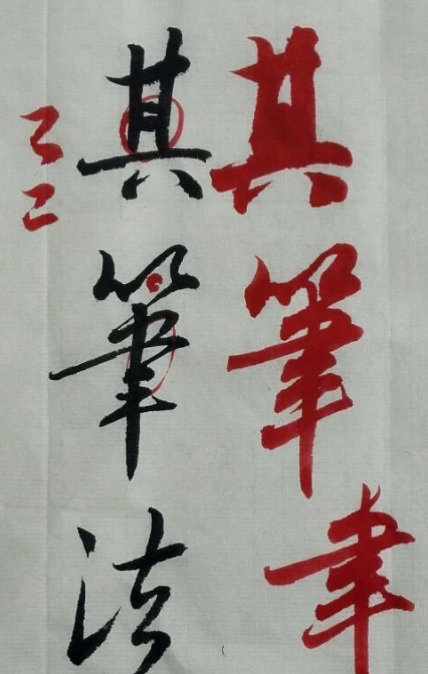 其筆聿
其筆法